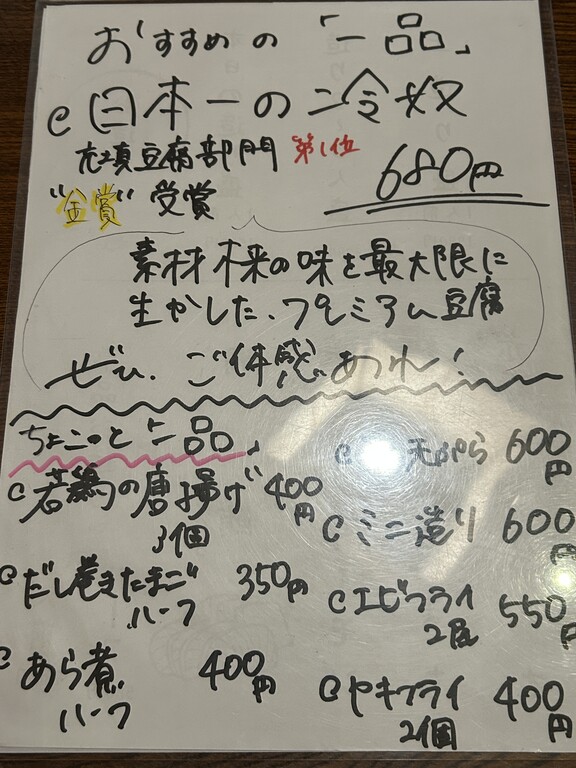 おすすめの「一品」
日本一の冷奴
充填豆腐部門 第1位
"金賞" 受賞
680円
素材本来の味を最大限に
生かした、プレミアム豆腐
ぜひ、ご体感あれ!
ちょこっと「一品」
若鶏の唐揚げ 400円
3個
だし巻きたまご 350円
ハーフ
あら煮 400円
ハーフ
天ぷら 600円
ミニ造り 600円
エビフライ 550円
2尾
カキフライ 400円
2個